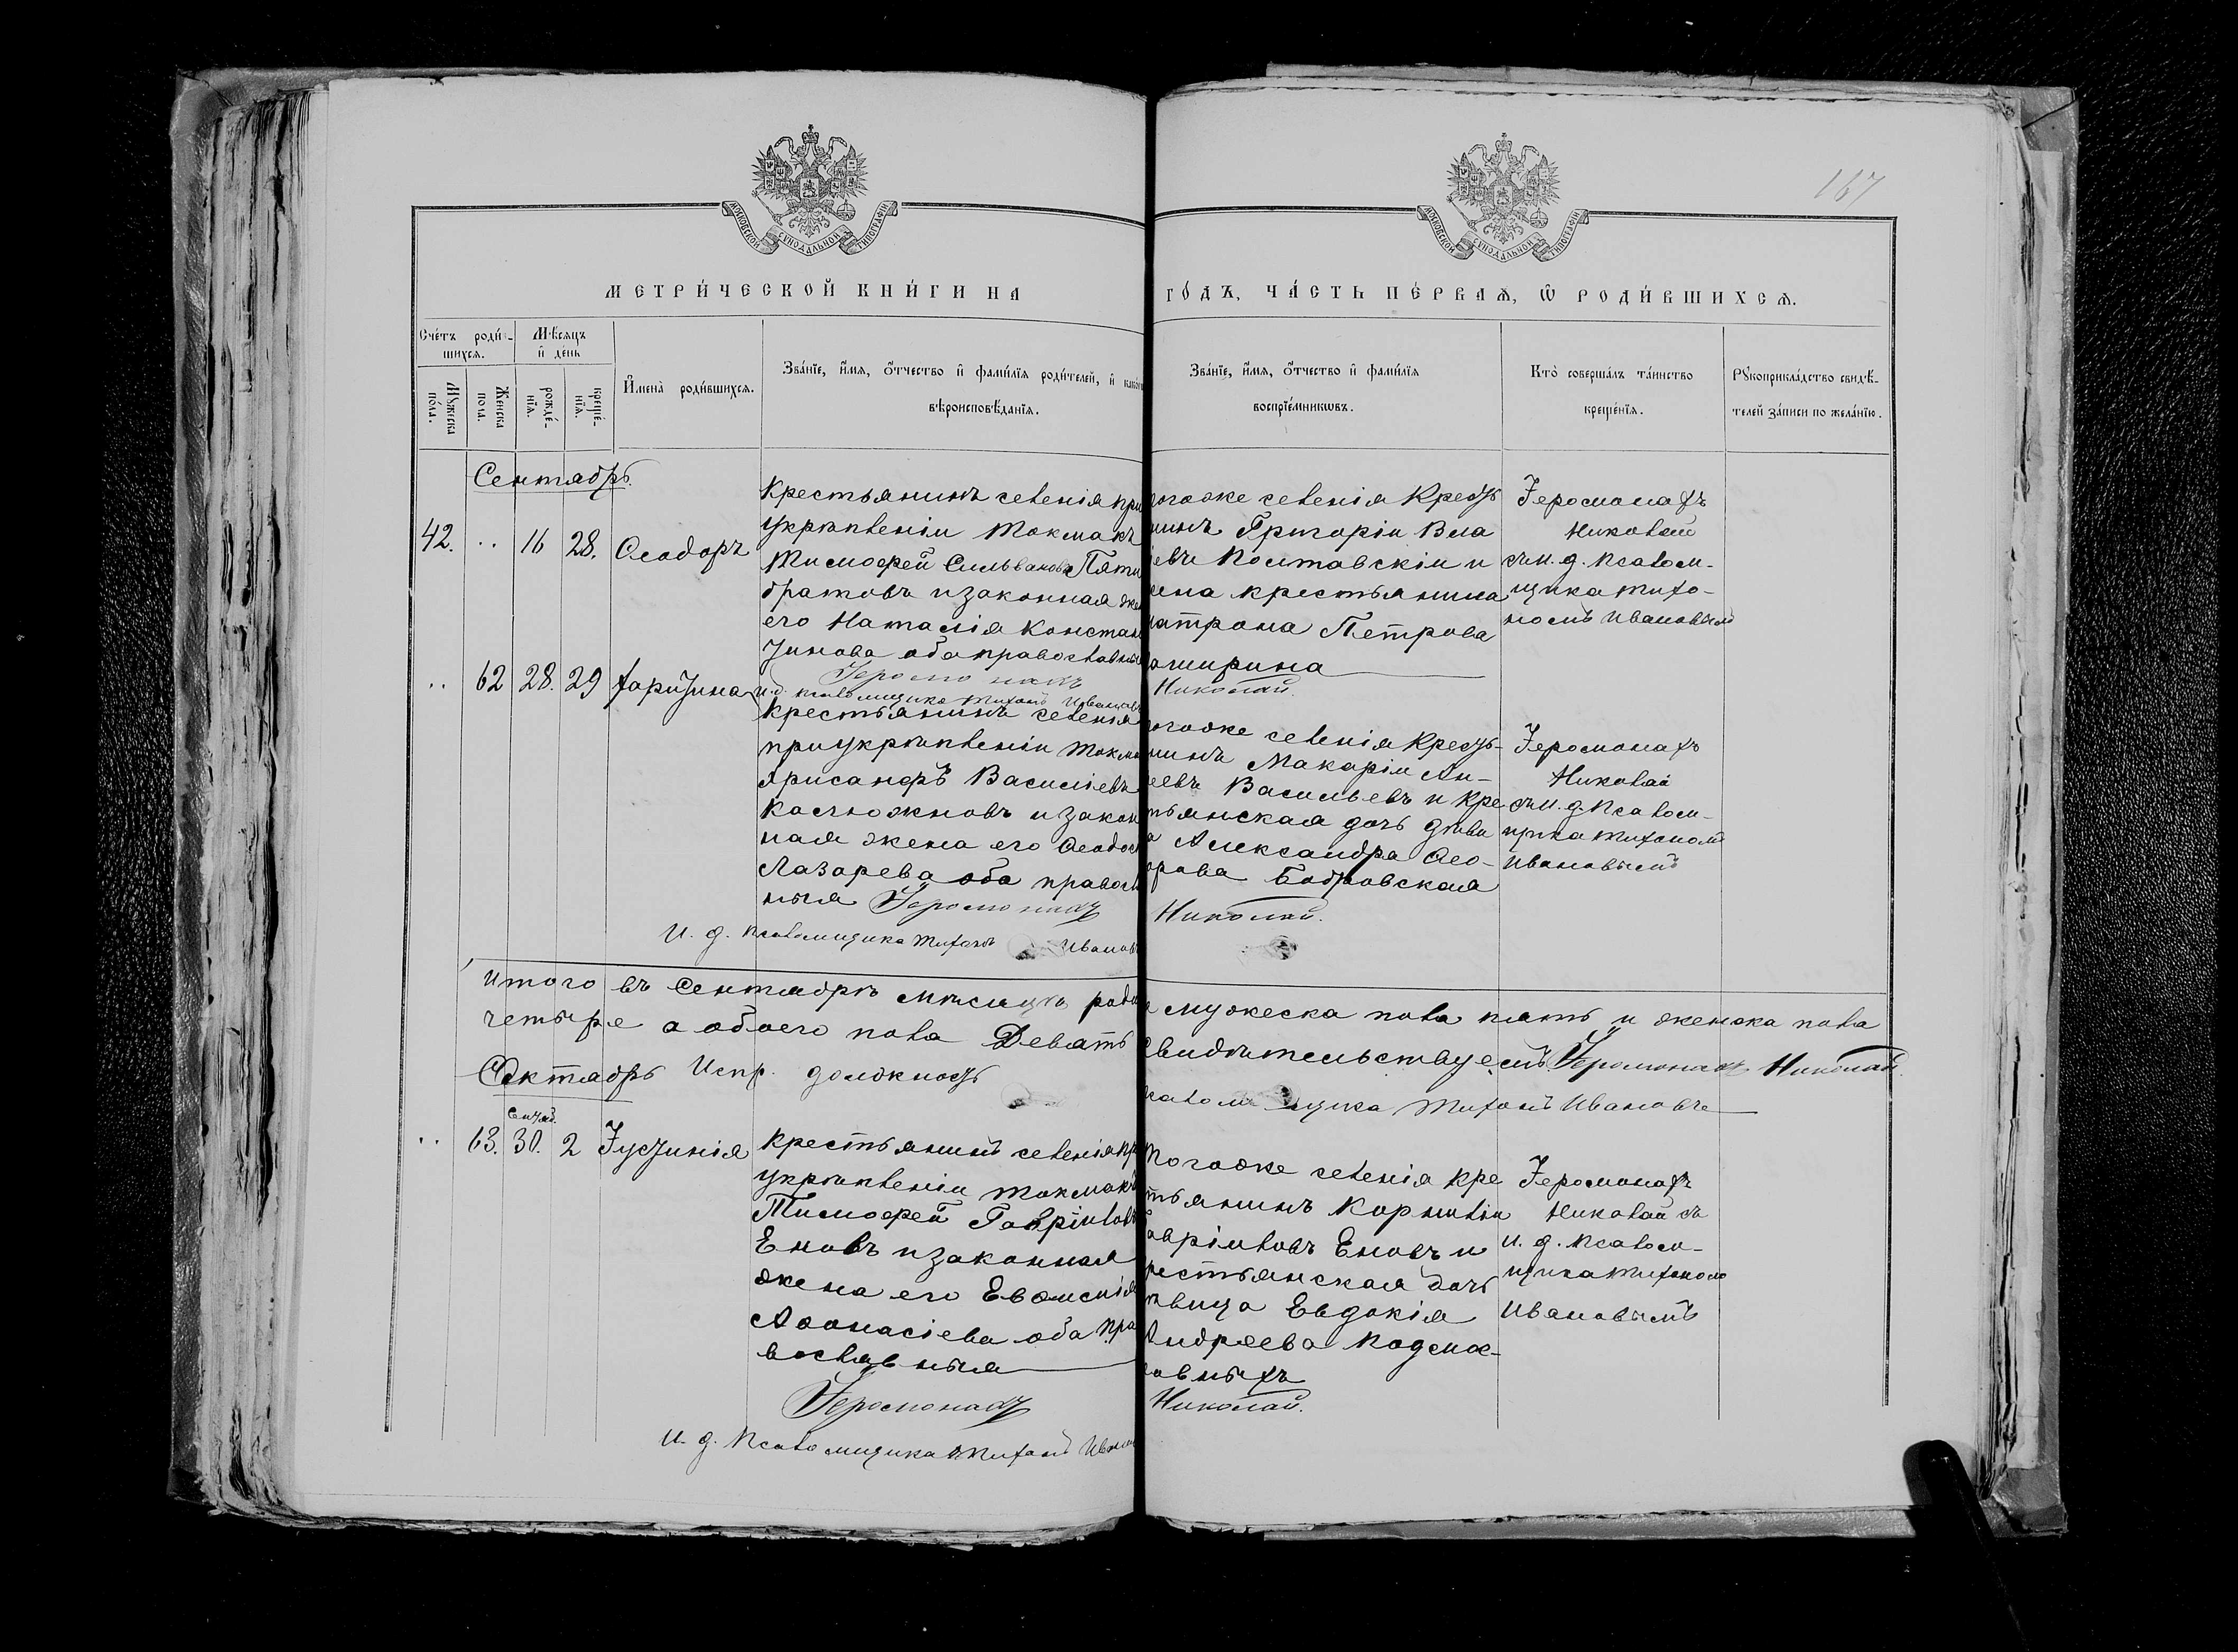 167
МОСКОВСКОЙ СУНОДАЛЬНОЙ ТИПОГРАФІИ
МОСКОВСКОЙ СУНОДАЛЬНОЙ ТИПОГРАФІИ
МЕТРИ́ЧЕСКОЙ КНИ́ГИ НА
ГО́ДЪ, ЧА́СТЬ ПЕ́РВАѦ, Ѿ РОДИ́ВШИХСѦ.
Сче́тъ роди́-
шихсѧ.
Мꙋжеска по́ла.
Женска пола.
Мѣ́сѧцъ
и҆ де́нь
рожде́-
нїѧ.
креще́-
нїѧ.
И҆мена̀ роди́вшихсѧ.
Зва́нїе, и҆́мѧ, ѻ҆́тчество и҆ фами́лїѧ роди́телей, и҆
вѣроисповѣ́данїѧ.
Зва́нїе, и҆́мѧ, ѻ҆́тчество и҆ фами́лїѧ
воспрїе́мникѡвъ.
Кто̀ соверша́лъ та́инство
креще́нїѧ.
Рꙋкоприкла́дство свидѣ́-
телей за́писи по жела́нїю.
Сентябрь.
42. .. 16 28. Ѳеодоръ
Крестьянинъ селенія при
укрѣпленіи Токмакъ
Тимофей Сильвановъ Пяти
братовъ и законная же
его Наталія Констан
тинова оба православны
Іеромонахъ
И.д. псаломщика Тихонъ Ивановъ
огоже селенія Кресть
нинъ Григорій Вла
евъ Полтавскій и
ена крестьянина
атрона Петрова
ширина
Николай.
Іеромонахъ
Николай
съ и. д. псалом-
щика Тихо-
номъ Ивановымъ
.. 62 28. 29 Харитина
Крестьянинъ селенія
при укрѣпленіи Токма
Хрисанфъ Василіевъ
и закон
ная жена его Ѳеодос
Лазарева оба правосл
ныя Іеромонахъ
И. д. псаломщика Тихонъ Ивановъ
огоже селенія Кресть-
нинъ Макарій Ан-
еевъ Васильевъ и Кре
тьянская дочь дѣви
а Александра Ѳео-
орова Бобровская
Николай.
Іеромонахъ
Николай
съ и. д. псалом-
щика Тихономъ
Ивановымъ
Итого въ Сентябрѣ мѣсяцѣ роди
мужеска пола пять и женска пола
четыре а обоего пола Девять
Свидѣтельствуемъ: Іеромонахъ Николай.
Октябрь Испр. должность
псаломщика Тихонъ Ивановъ
Сентяб.
.. 63. 30. 2 Іустинія
Крестьянинъ селенія пр
укрѣпленіи Токмакъ
Тимофей Гавріиловъ
Еновъ и законная
жена его Евѳимія
Аѳонасіева оба пра
вославныя
Іеромонахъ
И. д. Псаломщика Тихонъ Иванов
Тогоже селенія кре
тьянинъ Корнилій
авріиловъ Еновъ и
рестьянская дочь
ѣвица Евдокія
Андреева Подсмо-
овныхъ
Николай.
Іеромонахъ
Николай съ
и. д. псалом-
щика Тихономъ
Ивановымъ